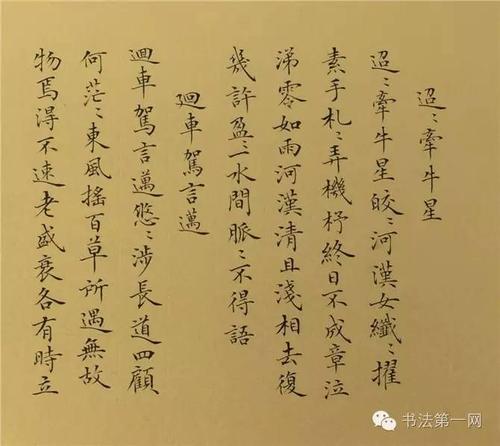 迢〻牽牛星
迢〻牽牛星皎〻河漢女纖〻擢
素手札〻弄機杼終日不成章泣
涕零如雨河漢清且淺相去復
幾許盈〻一水間脈〻不得語
迴車駕言邁
迴車駕言邁悠〻涉長道四顧
何茫〻東風搖百草所遇無故
物焉得不速老盛衰各有時立
书法第一网